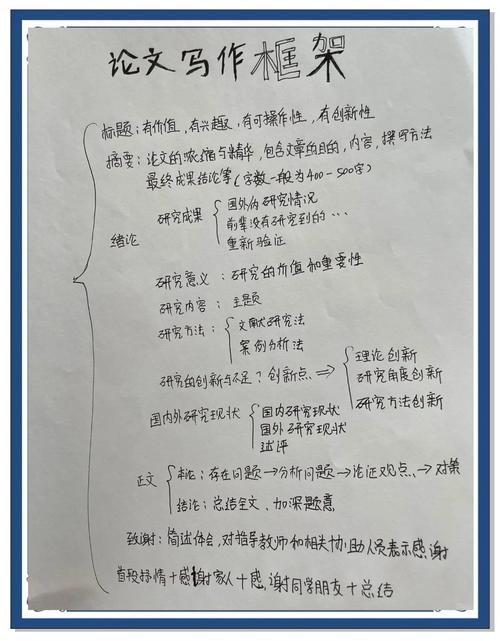 论文写作框架
标题：有价值，有兴趣，有可操作性，有创新性
摘要：论文的浓缩与精华，包含文章的目的，内容，撰写方法
最终成果结论等（字数一般为400-500字）
绪论
研究成果
国外内研究情况
前辈没有研究到的…
重新验证
研究意义：研究的价值和重要性
研究内容：主题
研究方法：
文献研究法
案例分析法
研究的创新与不足？创新点 ⇒
理论创新
研究角度创新
研究方法创新
国内外研究现状
国内研究现状
国外研究现状
述评
正文
本论：存在问题→分析问题→论证观点→对策
结论：总结全文，加深题意
致谢：简述体会，对指导教师和相关协助人员表示感谢
首段抒情+感谢家人+感谢同学朋友+总结